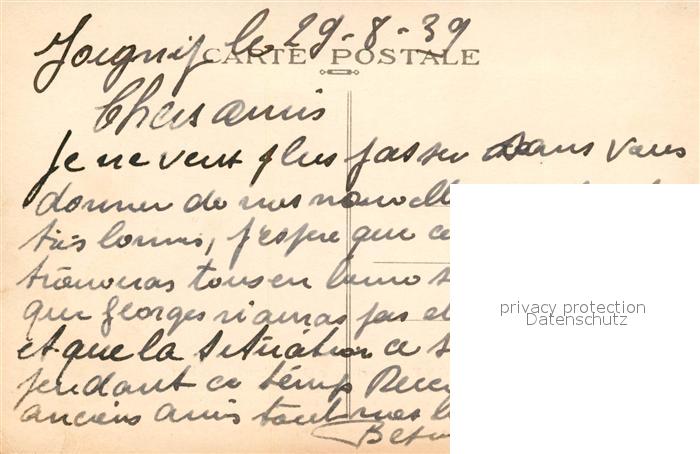 Joigny le 29-8-39
CARTE POSTALE
Chers amis
Je ne veux plus passer sans vous
donner de mes nouvelle
très bonnes, j'espère que ce
trouveras tous en bonne s
que Georges n'auras pas et
et que la situation ce s
pendant ce temp Rece
anciens amis tout mes
privacy protection
Datenschutz